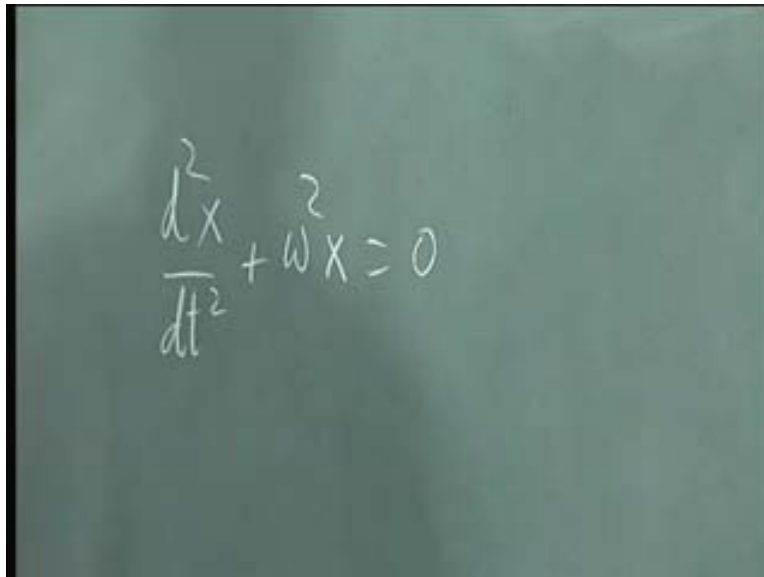 d²x/dt² + ω²x = 0